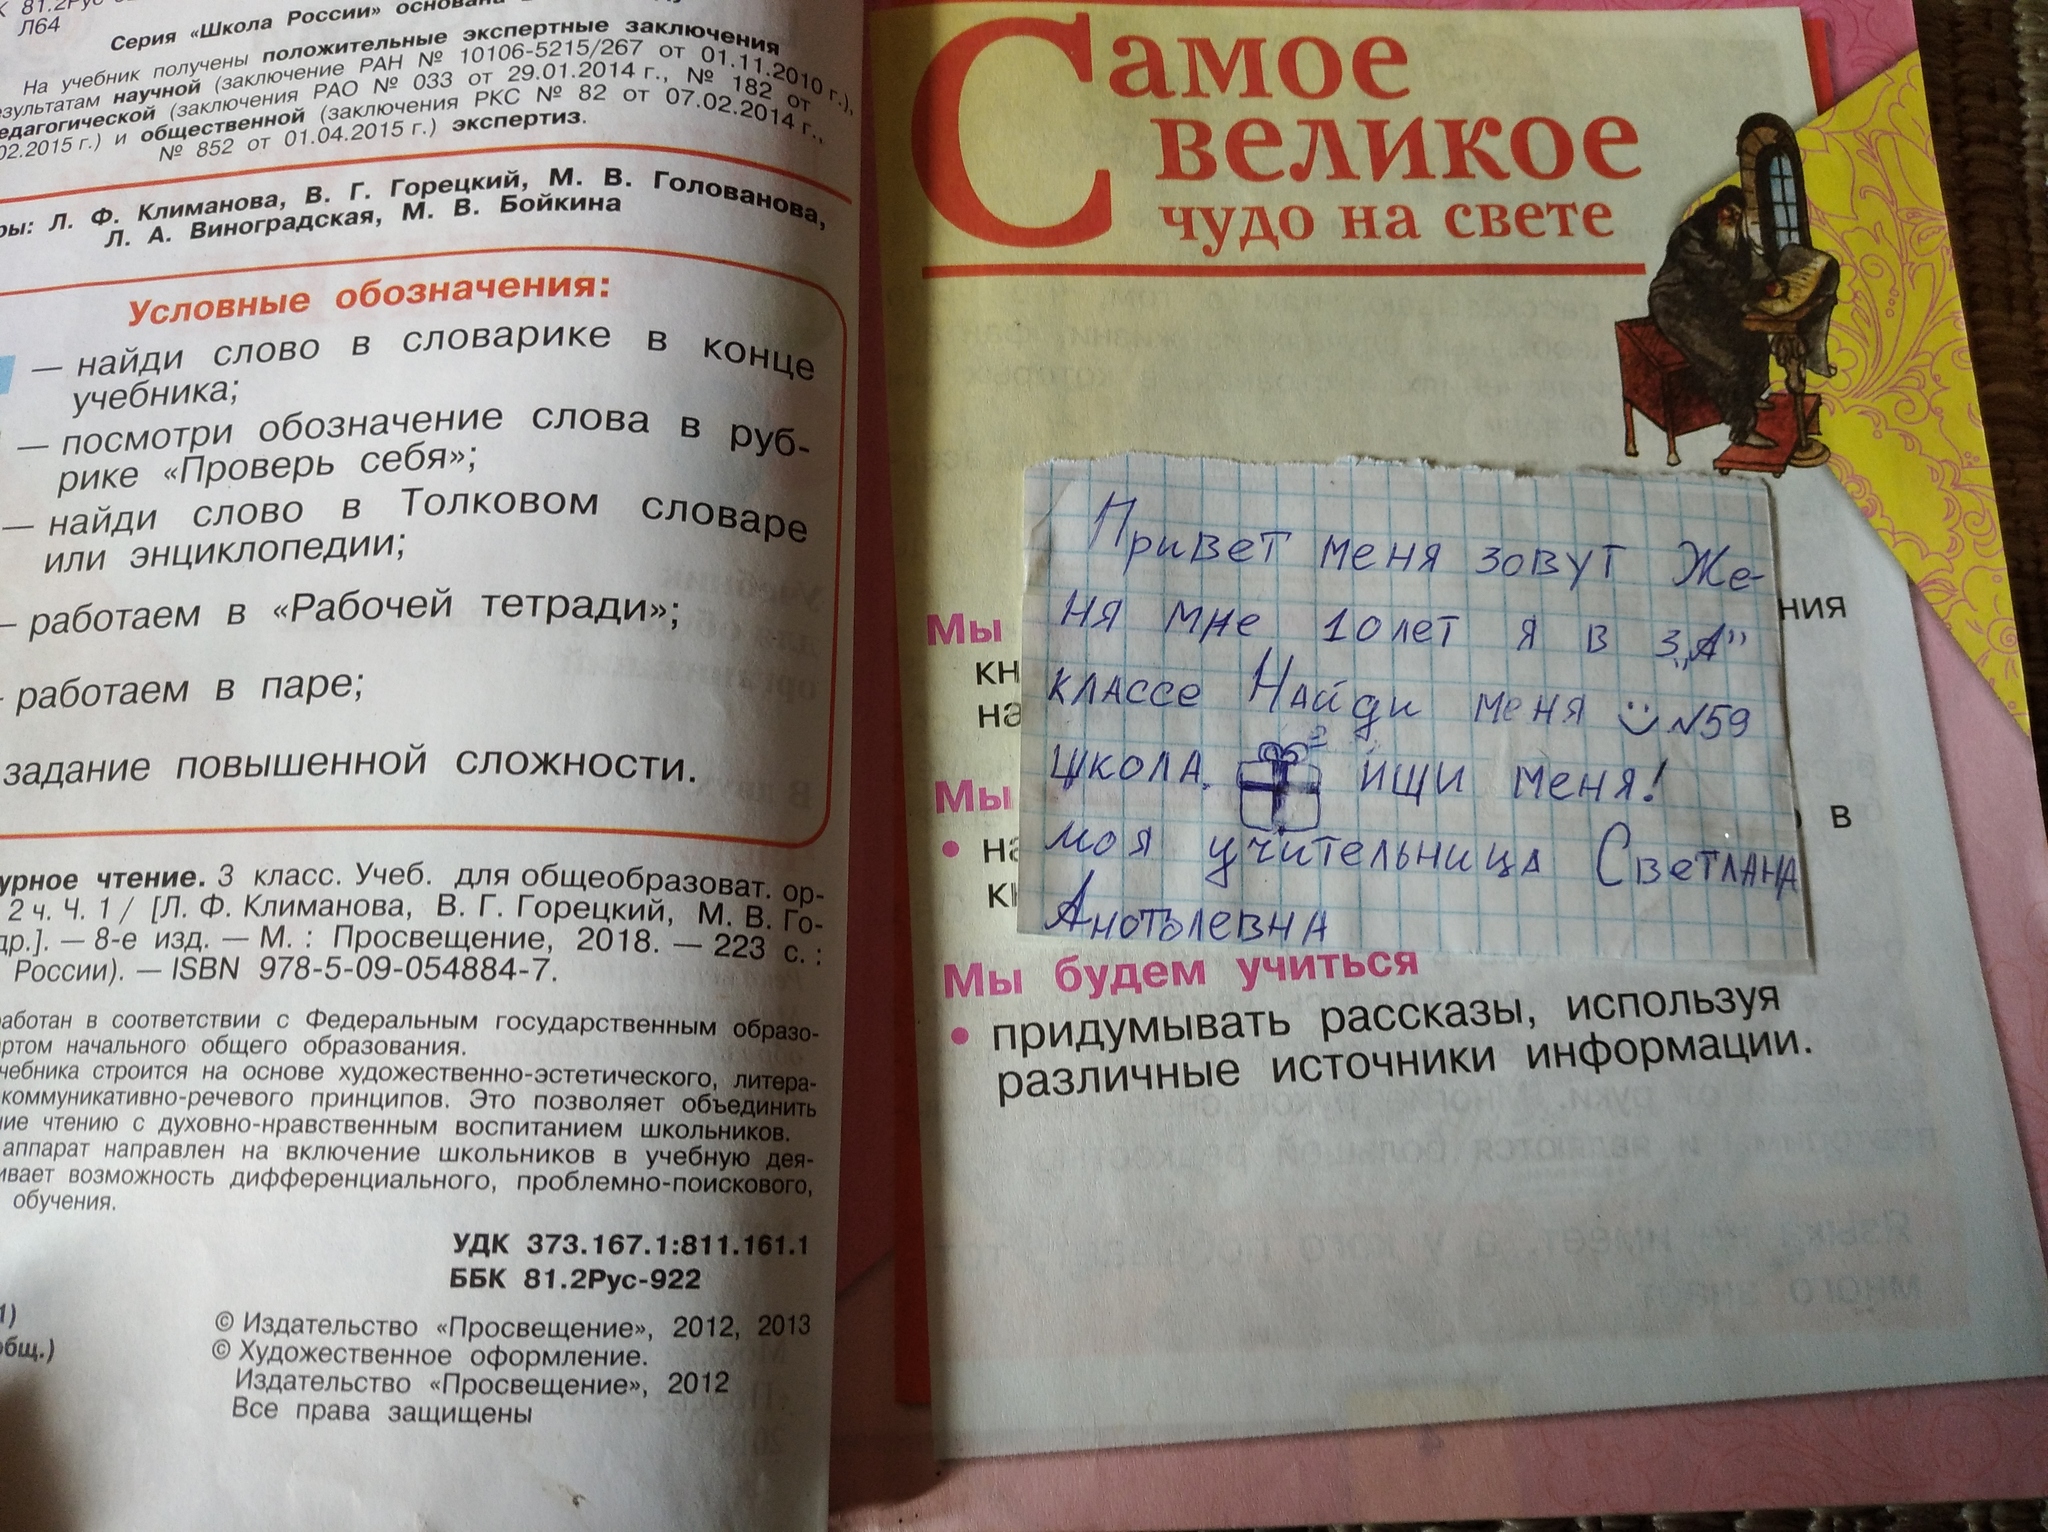 81.2Рус
Л64
Серия «Школа России» основана
На учебник получены положительные экспертные заключения
научной (заключение РАН № 10106-5215/267 от 01.11.2010 г.),
(заключения РАО № 033 от 29.01.2014 г., № 182 от
02.2015 г.) и общественной (заключения РКС № 82 от 07.02.2014 г.,
№ 852 от 01.04.2015 г.) экспертиз.
Л. Ф. Климанова, В. Г. Горецкий, М. В. Голованова,
Л. А. Виноградская, М. В. Бойкина
Условные обозначения:
— найди слово в словарике в конце
учебника;
— посмотри обозначение слова в руб-
рике «Проверь себя»;
— найди слово в Толковом словаре
или энциклопедии;
— работаем в «Рабочей тетради»;
- работаем в паре;
задание повышенной сложности.
урное чтение. 3 класс. Учеб. для общеобразоват. ор-
2 ч. Ч. 1 / [Л. Ф. Климанова, В. Г. Горецкий, М. В. Го-
др.]. — 8-е изд. — М. : Просвещение, 2018. — 223 с. :
России). — ISBN 978-5-09-054884-7.
работан в соответствии с Федеральным государственным образо-
начального общего образования.
чебника строится на основе художественно-эстетического, литера-
коммуникативно-речевого принципов. Это позволяет объединить
ние чтению с духовно-нравственным воспитанием школьников.
аппарат направлен на включение школьников в учебную дея-
ивает возможность дифференциального, проблемно-поискового,
обучения.
УДК 373.167.1:811.161.1
ББК 81.2Рус-922
1)
общ.)
© Издательство «Просвещение», 2012, 2013
© Художественное оформление.
Издательство «Просвещение», 2012
Все права защищены
Самое
великое
чудо на свете
Привет меня зовут Же-
ня мне 10 лет я в 3 „А”
классе Найди меня №59
школа. ищи меня!
моя учительница Светлана
Анотолевна
Мы
ния
кн
на
Мы
в
• на
кн
Мы будем учиться
• придумывать рассказы, используя
различные источники информации.